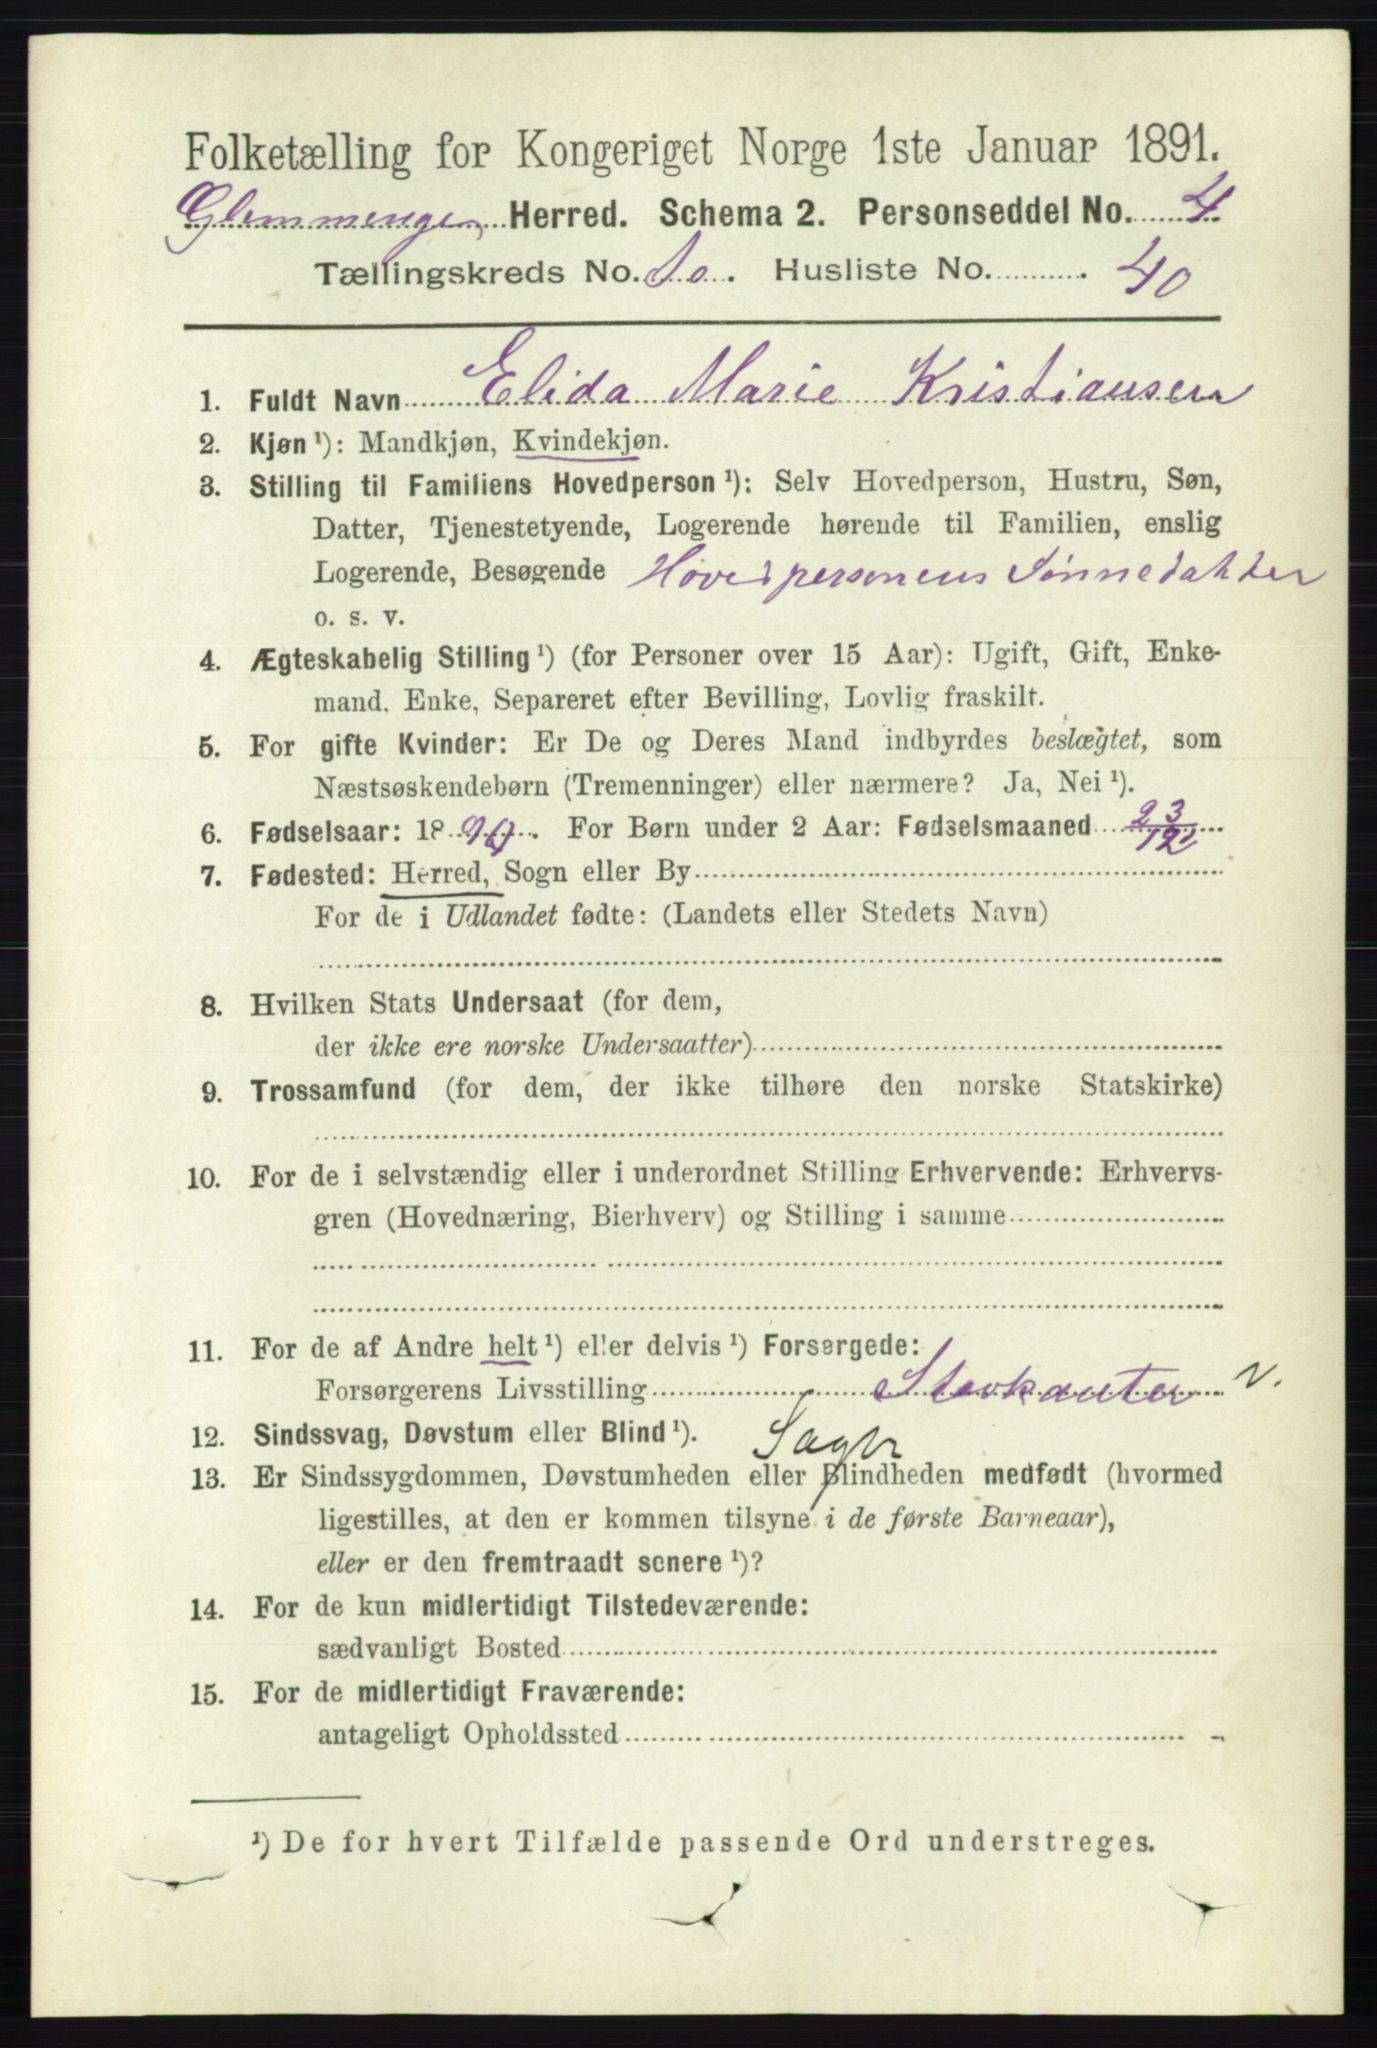 Folketælling for Kongeriget Norge 1ste Januar 1891.
Glemminge Herred. Schema 2. Personseddel No. 4
Tællingskreds No. 10. Husliste No. 40
1. Fuldt Navn Elida Marie Kristiansen
2. Kjøn ¹): Mandkjøn, Kvindekjøn.
3. Stilling til Familiens Hovedperson ¹): Selv Hovedperson, Hustru, Søn,
Datter, Tjenestetyende, Logerende hørende til Familien, enslig
Logerende, Besøgende Hovedpersonens Sønnedatter
o. s. v.
4. Ægteskabelig Stilling ¹) (for Personer over 15 Aar): Ugift, Gift, Enke-
mand, Enke, Separeret efter Bevilling, Lovlig fraskilt.
5. For gifte Kvinder: Er De og Deres Mand indbyrdes beslægtet, som
Næstsøskendebørn (Tremenninger) eller nærmere? Ja, Nei ¹).
6. Fødselsaar: 1890. For Børn under 2 Aar: Fødselsmaaned 23/12
7. Fødested: Herred, Sogn eller By
For de i Udlandet fødte: (Landets eller Stedets Navn)
8. Hvilken Stats Undersaat (for dem,
der ikke ere norske Undersaatter)
9. Trossamfund (for dem, der ikke tilhøre den norske Statskirke)
10. For de i selvstændig eller i underordnet Stilling Erhvervende: Erhvervs-
gren (Hovednæring, Bierhverv) og Stilling i samme
11. For de af Andre helt ¹) eller delvis ¹) Forsørgede:
Forsørgerens Livsstilling Stavkanter v.
12. Sindssvag, Døvstum eller Blind ¹). Sagbr
13. Er Sindssygdommen, Døvstumheden eller Blindheden medfødt (hvormed
ligestilles, at den er kommen tilsyne i de første Barneaar),
eller er den fremtraadt senere ¹)?
14. For de kun midlertidigt Tilstedeværende:
sædvanligt Bosted
15. For de midlertidigt Fraværende:
antageligt Opholdssted
¹) De for hvert Tilfælde passende Ord understreges.